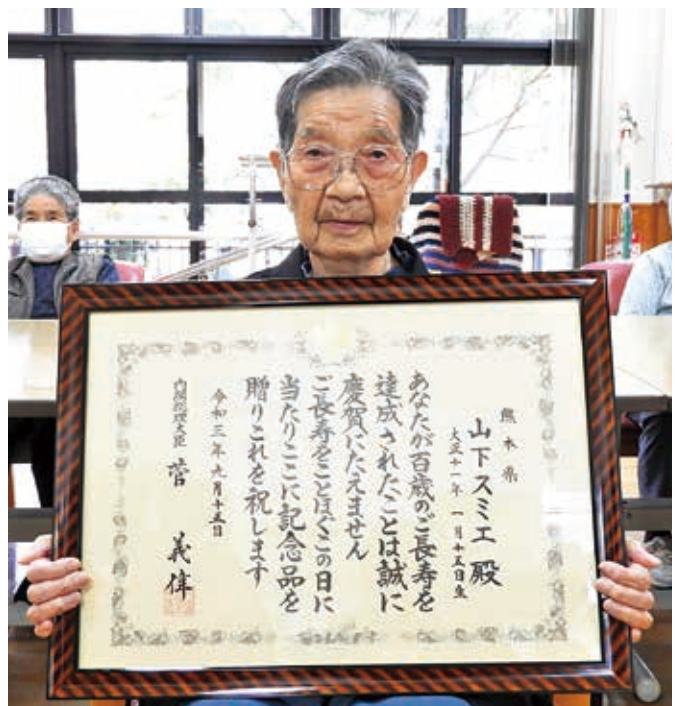 熊本県
山下スミエ 殿
大正十一年 一月十五日生
あなたが百歳のご長寿を
達成されたことは誠に
慶賀にたえません
ご長寿をことほぐこの日に
当たりここに記念品を
贈りこれを祝します
令和三年九月十五日
内閣総理大臣 菅 義偉